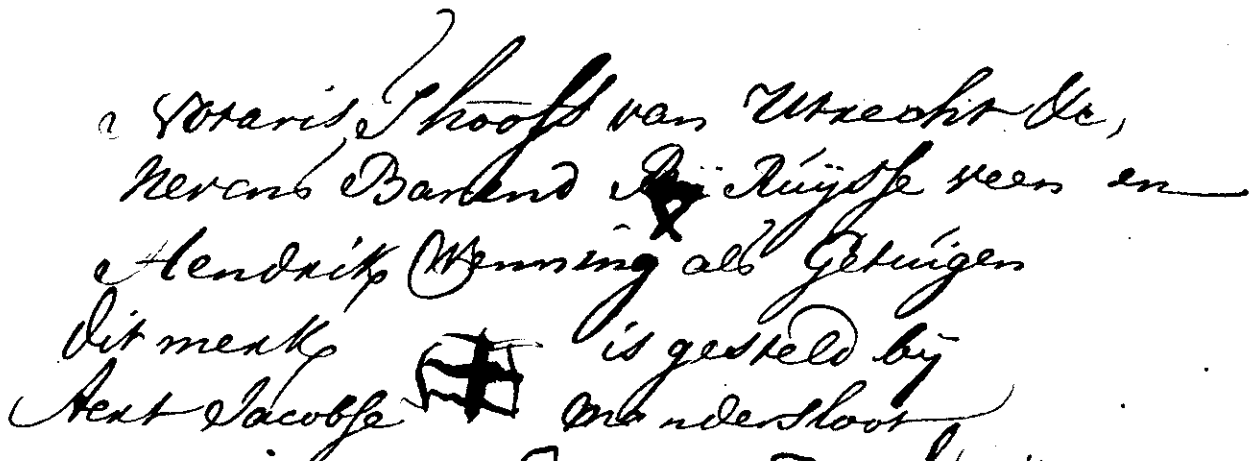 Notaris, T hooft van Utrecht &c,
nevens Barend Ruijtse veen en
Hendrik Wenning als Getuigen
dit merk is gesteld bij
Aert Jacobse Mandersloot